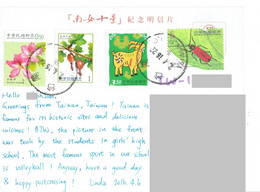 「南女十景」紀念明信片
Hello
Greetings from Tainan, Taiwan! Tainan is
famous for its historic sites and delicious
cuisines! BTW, the picture in the front
was took by the students in girls' high
school. The most famous sport in our school
is volleyball! Anyway, have a good day
& happy postcrossing! Linda 2014.4.6